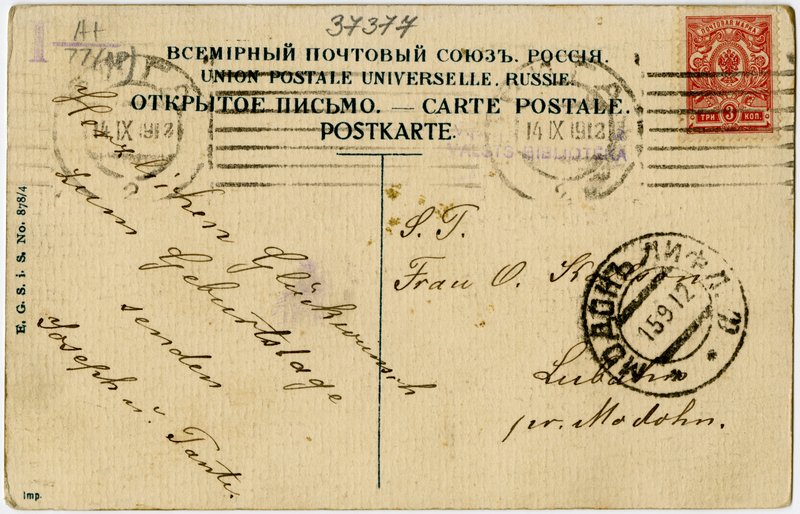 37377
I A+
77/(AP)
ВСЕМІРНЫЙ ПОЧТОВЫЙ СОЮЗЪ. РОССІЯ.
UNION POSTALE UNIVERSELLE. RUSSIE.
ОТКРЫТОЕ ПИСЬМО. — CARTE POSTALE.
POSTKARTE.
ПОЧТОВАЯ МАРКА
3
ТРИ КОП.
14 IX 1912
14 IX 1912
Herzlichen Glückwunsch
zum Geburtstage
senden
Joseph u. Tante.
S. T.
Frau O.
Lubahn
pr. Modohn.
МОДОНЪ ЛИФЛ. Г.
15 9 12
E. G. S. i. S. No. 878/4
Imp.